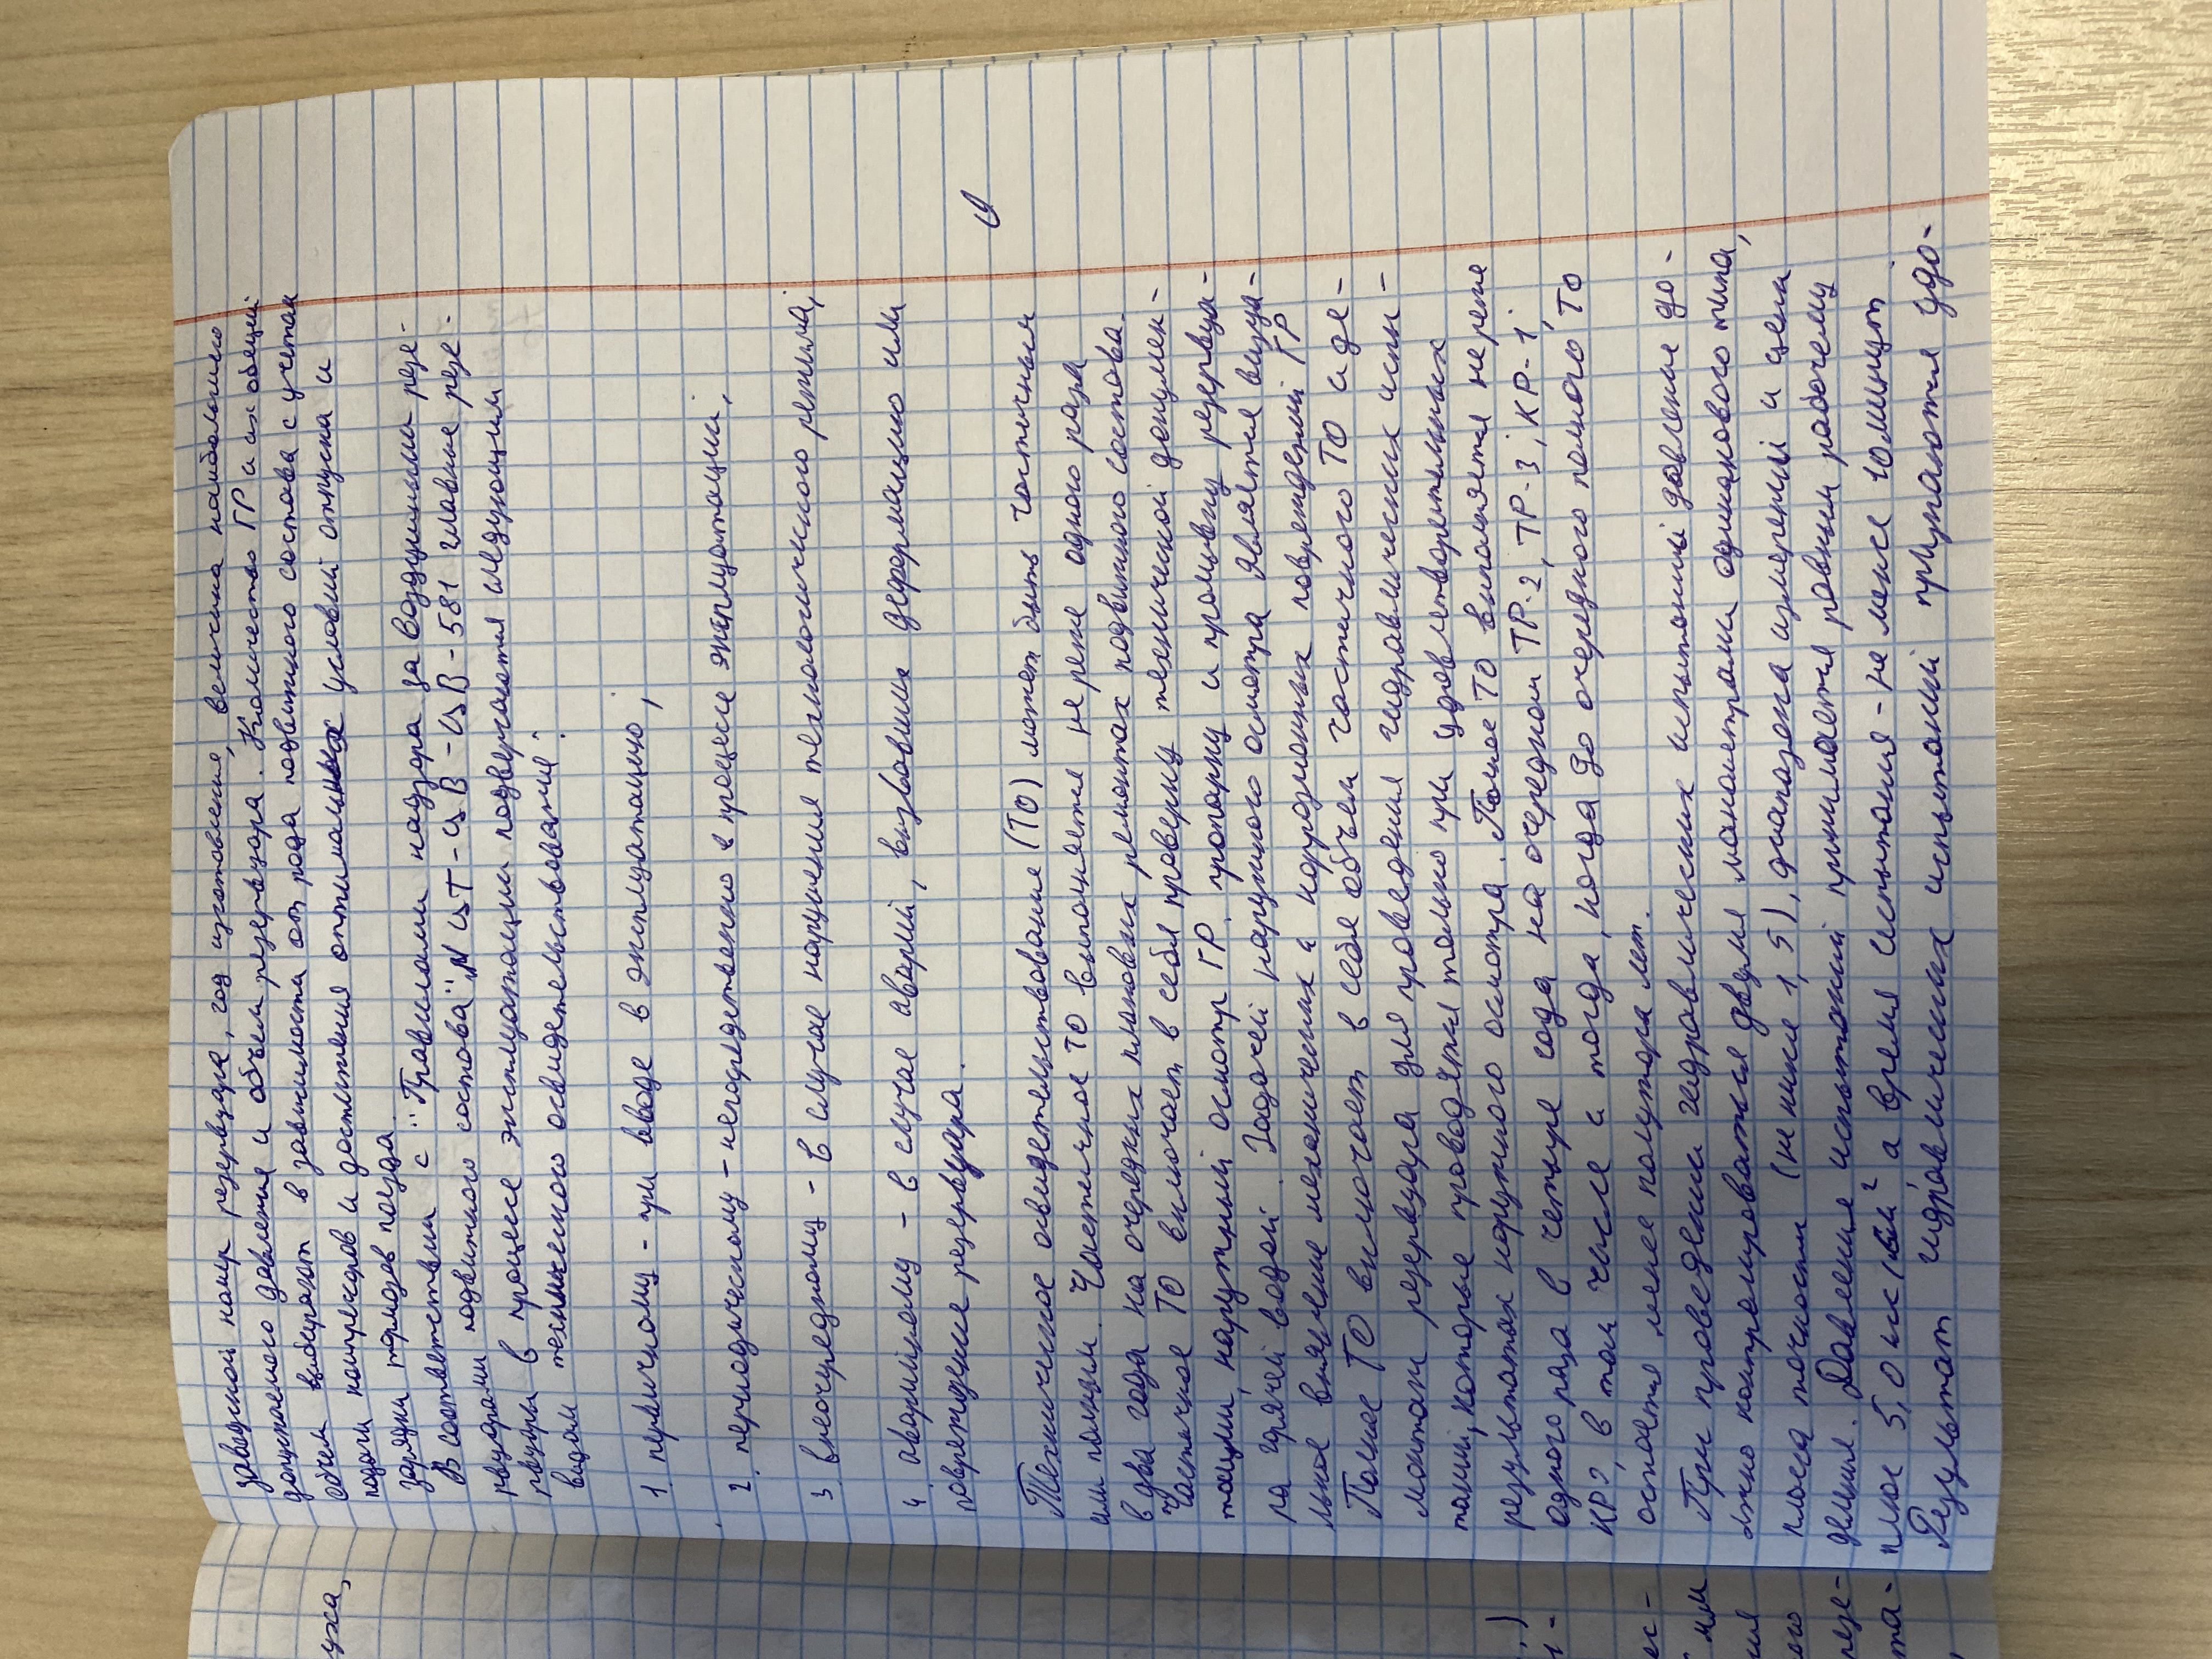 заводской номер резервуара, год изготовления, величина наибольшего
допускаемого давления и объем резервуара. Количество ГР и их общий
объем выбирают в зависимости от рода подвижного состава с учетом
подачи компрессоров и достижения оптимальных условий отпуска и
зарядки тормозов поезда.
В соответствии с "Правилами надзора за воздушными резе-
рвуарами подвижного состава" № ЦТ-ЦВ-ЦВ-581 главные резе-
рвуары в процессе эксплуатации подвергаются следующим
видам технического освидетельствования:
1. первичному - при вводе в эксплуатацию;
2. периодическому - непосредственно в процессе эксплуатации;
3. внеочередному - в случае нарушения технологического режима;
4. аварийному - в случае аварий, вызвавших деформацию или
повреждение резервуара.
Техническое освидетельствование (ТО) может быть частичным
или полным. Частичное ТО выполняется не реже одного раза
в два года на очередных плановых ремонтах подвижного состава.
Частичное ТО включает в себя проверку технической докумен-
тации, наружный осмотр ГР, пропарку и промывку резервуа-
ра горячей водой. Задачей наружного осмотра является визуа-
льное выявление механических и коррозионных повреждений ГР
Полное ТО включает в себя объем частичного ТО и де-
монтаж резервуара для проведения гидравлических испы-
таний, которые проводятся только при удовлетворительных
результатах наружного осмотра. Полное ТО выполняется не реже
одного раза в четыре года на очередном ТР-2, ТР-3, КР-1,
КР2, в том числе и тогда, когда до очередного полного ТО
остается менее полутора лет.
При проведении гидравлических испытаний давление до-
лжно контролироваться двумя манометрами одинакового типа,
класса точности (не ниже 1,5), диапазона измерений и цена
деления. Давление испытаний принимается равным рабочему
плюс 5,0 кгс/см² а время испытания - не менее 10 минут
Результат гидравлических испытаний признаются удо-
уха,